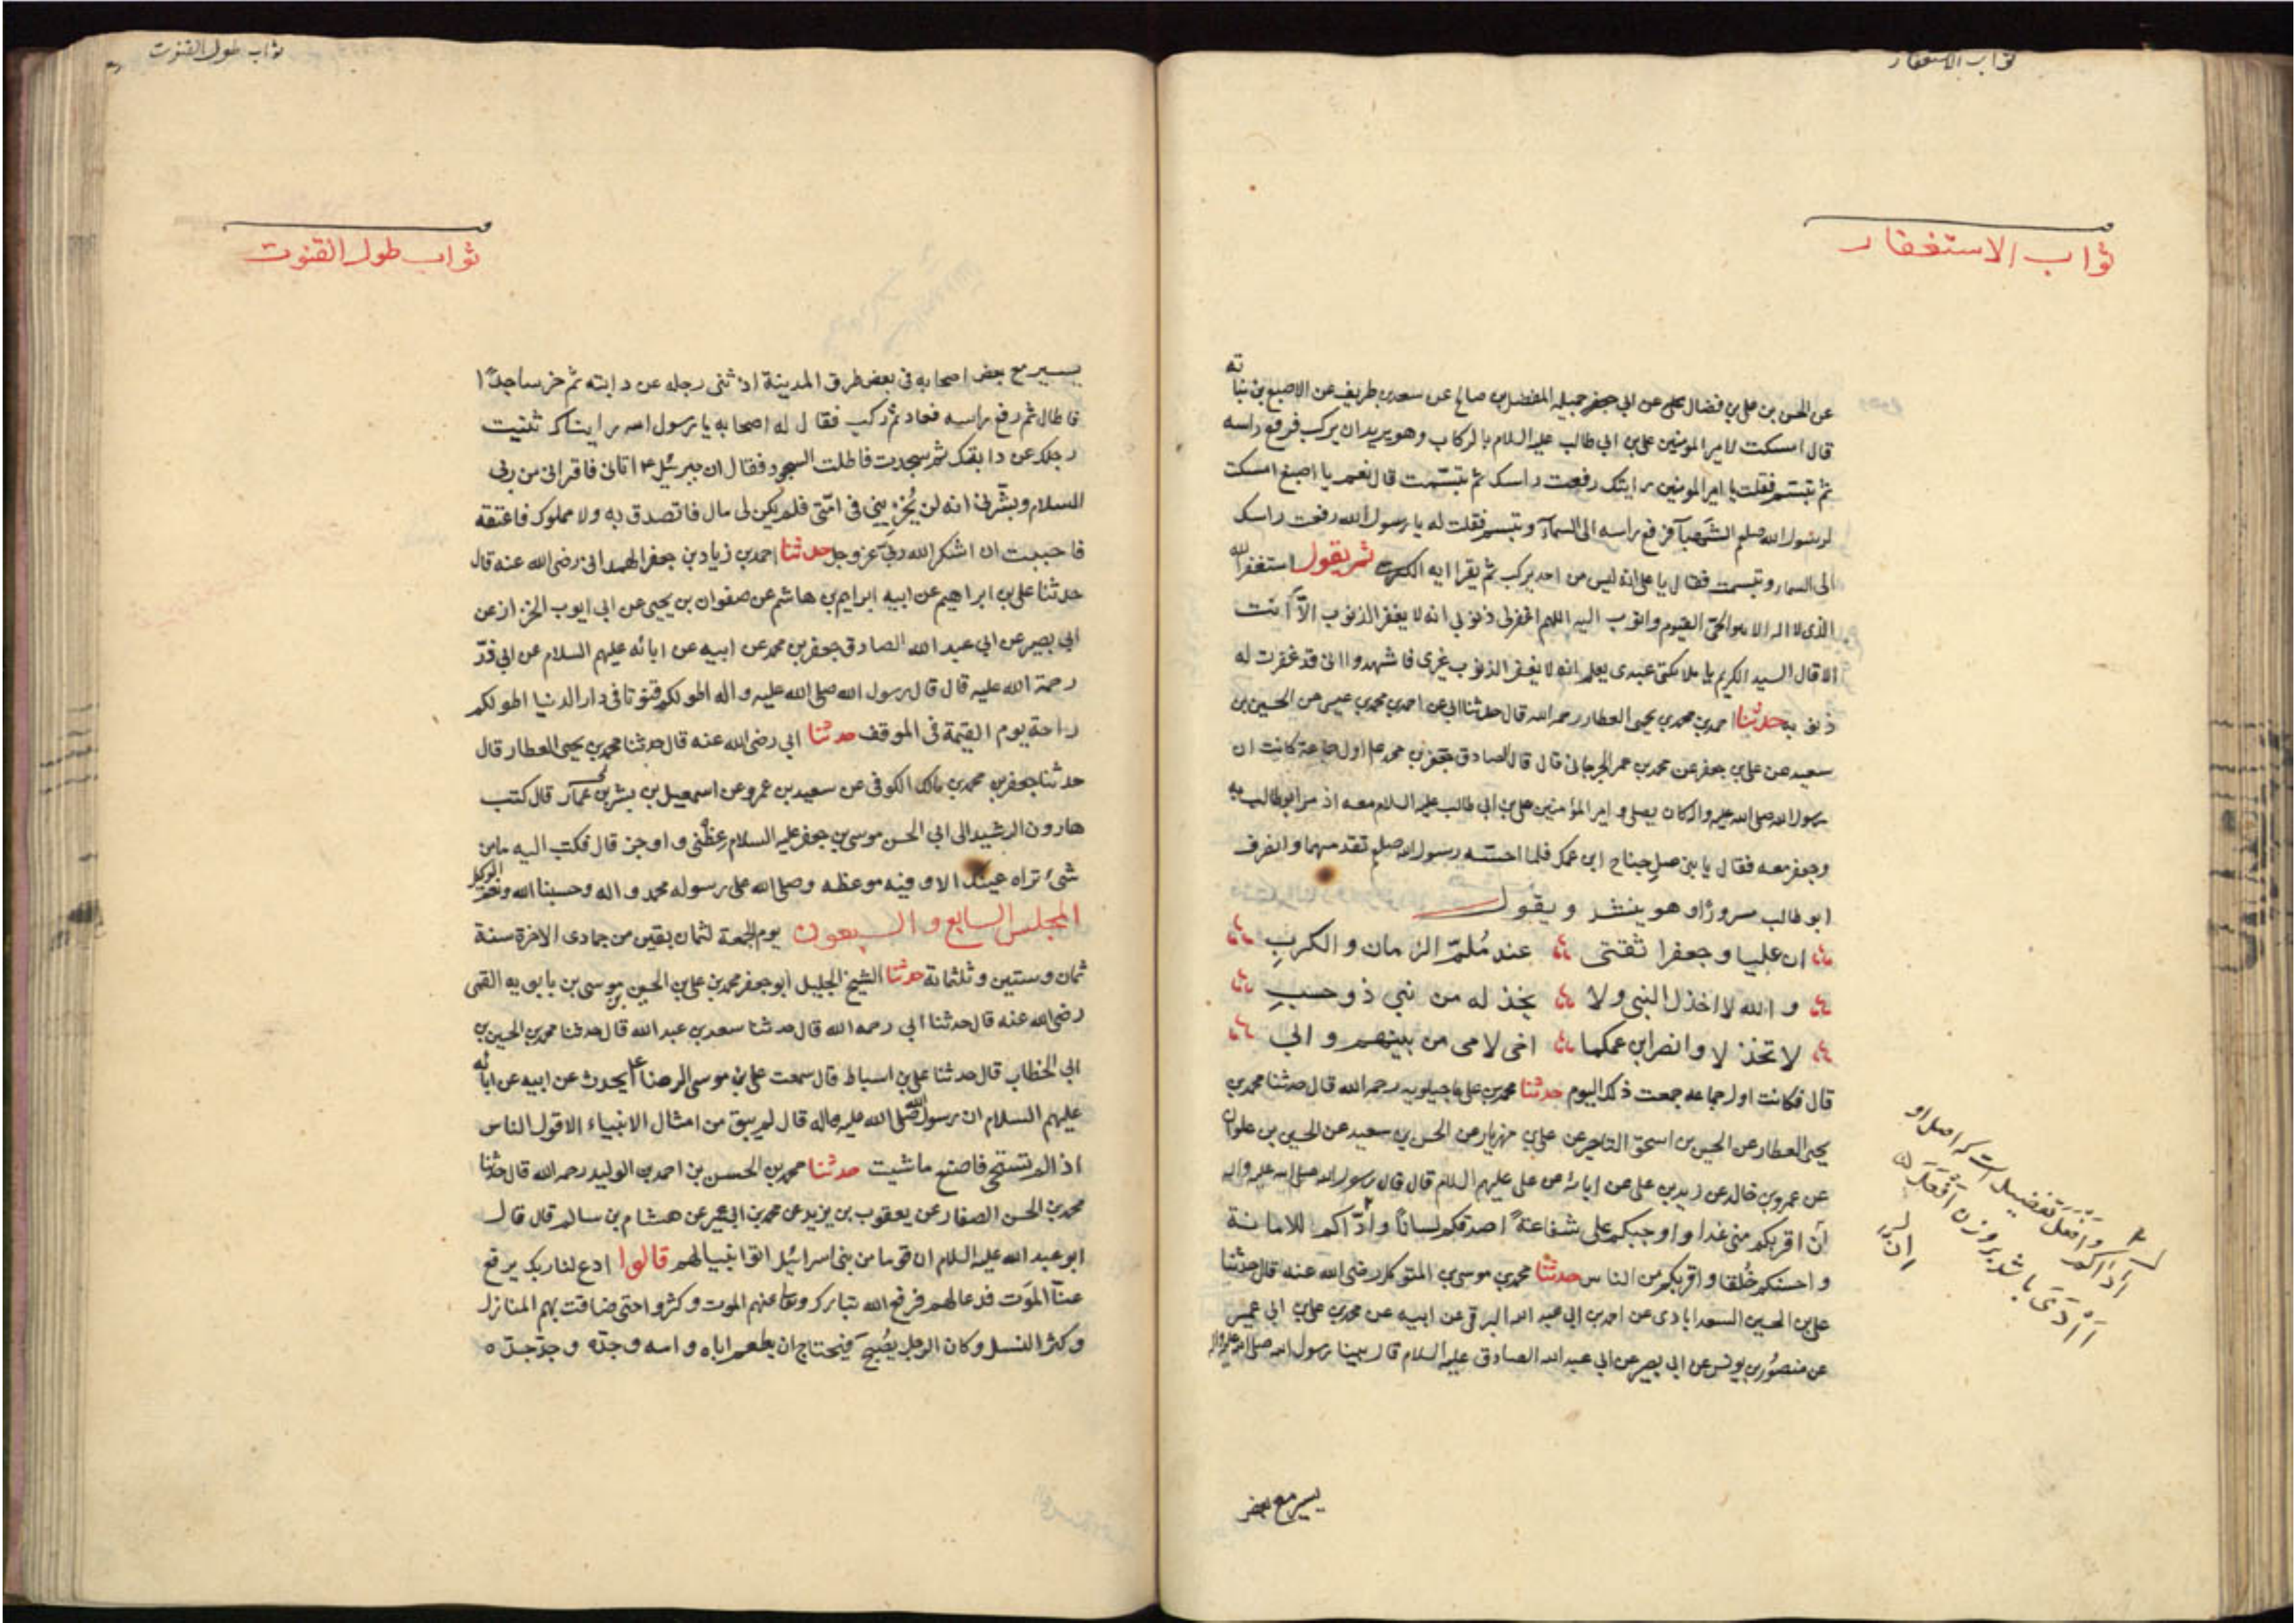 ثواب الاستغفار
ثواب الاستغفار
عن الحسن بن علي بن فضال عن ابي جميله المفضل بن صالح عن سعد بن طريف عن الاصبغ بن نباته
قال امسكت لامير المومنين علي بن ابي طالب عليه السلام بالركاب وهو يريد ان يركب فرفع راسه
ثم تبسم فقلت يا امير المومنين رايتك رفعت راسك ثم تبسمت قال نعم يا اصبغ امسكت
لرسول الله صلعم الشهبآ فرفع راسه الى السمآء وتبسم فقلت له يا رسول الله رفعت راسك
الى السماء وتبسمت فقال يا علي انه ليس من احد يركب ثم يقرا ايه الكرسي ثم يقول استغفر الله
الذى لا اله الا هو الحى القيوم واتوب اليه اللهم اغفر لى ذنوبي انه لا يغفر الذنوب الا انت
الا قال السيد الكريم يا ملائكتى عبدى يعلم انه لا يغفر الذنوب غيرى فاشهدوا انى قد غفرت له
ذنوبه حدثنا احمد بن محمد بن يحيى العطار رحمه الله قال حدثنا ابي عن احمد بن محمد بن عيسى عن الحسين بن
سعيد عن علي بن جعفر عن محمد بن عمر الجرجانى قال قال الصادق جعفر بن محمد ع اول جماعة كانت ان
رسول الله صلى الله عليه واله كان يصلى وامير المؤمنين علي بن ابي طالب عليه السلام معه اذ مر ابو طالب به
وجعفر معه فقال يا بنى صل جناح ابن عمك فلما احسه رسول الله صلعم تقدمهما وانصرف
ابو طالب سرورًا وهو ينشد ويقول
ان عليا وجعفرا ثقتى عند مُلمّ الزمان والكربِ
و الله لا اخذل النبي ولا يخذله من بني ذو حسبِ
لا تخذلا وانصرا ابن عمكما اخى لامى من بينهم وابي
قال فكانت اول جماعه جمعت ذلك اليوم حدثنا محمد بن علي ماجيلويه رحمه الله قال حدثنا محمد بن
يحيى العطار عن الحسين بن اسحق التاجر عن علي بن مهزيار عن الحسن بن سعيد عن الحسين بن علوان
عن عمرو بن خالد عن زيد بن علي عن ابائه عن علي عليهم السلام قال قال رسول الله صلى الله عليه واله
انّ اقربكم منى غدا واوجبكم على شفاعةً اصدقكم لسانًا وادّاكم للامانة
واحسنكم خُلقا واقربكم من الناس حدثنا محمد بن موسى بن المتوكل رضى الله عنه قال حدثنا
علي بن الحسين السعدابادى عن احمد بن ابي عبد الله البرقى عن ابيه عن محمد بن علي بن ابي عمير
عن منصور بن يونس عن ابي بصير عن ابي عبد الله الصادق عليه السلام قال بينا رسول الله صلى الله عليه واله
يسير مع بعض
ثواب طول القنوت
ثواب طول القنوت
يسير مع بعض اصحابه فى بعض طرق المدينة اذ ثنى رجله عن دابته ثم خر ساجدًا
فاطال ثم رفع راسه فعاد ثم ركب فقال له اصحابه يا رسول الله رايناك ثنيت
رجلك عن دابتك ثم سجدت فاطلت السجود فقال ان جبرئيل ع اتانى فاقرانى من ربى
السلام وبشّرنى انه لن يُخزِيني فى امّتى فلم يكن لى مال فاتصدق به ولا مملوك فاعتقه
فاحببت ان اشكر الله ربي عز وجل حدثنا احمد بن زياد بن جعفر الهمدانى رضى الله عنه قال
حدثنا على بن ابراهيم عن ابيه ابراهيم بن هاشم عن صفوان بن يحيى عن ابي ايوب الخزاز عن
ابي بصير عن ابي عبد الله الصادق جعفر بن محمد عن ابيه عن ابائه عليهم السلام عن ابي ذرّ
رحمة الله عليه قال قال رسول الله صلى الله عليه واله اطولكم قنوتا فى دار الدنيا اطولكم
راحة يوم القيمة فى الموقف حدثنا ابي رضى الله عنه قال حدثنا محمد بن يحيى العطار قال
حدثنا جعفر بن محمد بن مالك الكوفى عن سعيد بن عمرو عن اسمعيل بن بشر بن عمار قال كتب
هارون الرشيد الى ابي الحسن موسى بن جعفر عليه السلام عظنى واوجز قال فكتب اليه ما من
شىء تراه عينك الا وفيه موعظه وصلى الله على رسوله محمد واله وحسبنا الله ونعم الوكيل
المجلس السابع والسبعون يوم الجمعة لثمان بقين من جمادى الاخرة سنة
ثمان وستين وثلثمائة حدثنا الشيخ الجليل ابو جعفر محمد بن علي بن الحسين بن موسى بن بابويه القمى
رضى الله عنه قال حدثنا ابي رحمه الله قال حدثنا سعد بن عبد الله قال حدثنا محمد بن الحسين بن
ابي الخطاب قال حدثنا علي بن اسباط قال سمعت علي بن موسى الرضا ع يحدث عن ابيه عن ابائه
عليهم السلام ان رسول الله صلى الله عليه واله قال لم يبق من امثال الانبياء الا قول الناس
اذا لم تستحى فاصنع ما شيت حدثنا محمد بن الحسن بن احمد بن الوليد رحمه الله قال حدثنا
محمد بن الحسن الصفار عن يعقوب بن يزيد عن محمد بن ابي عمير عن هشام بن سالم قال قال
ابو عبد الله عليه السلام ان قوما من بنى اسرائيل اتوا نبيا لهم قالوا ادع لنا ربك يرفع
عنّا الموت فدعا لهم فرفع الله تبارك وتعالى عنهم الموت وكثروا حتى ضاقت بهم المنازل
وكثر النسل وكان الرجل يُصبح فيحتاج ان يطعم اباه وامه وجدّه وجدّ جدّه